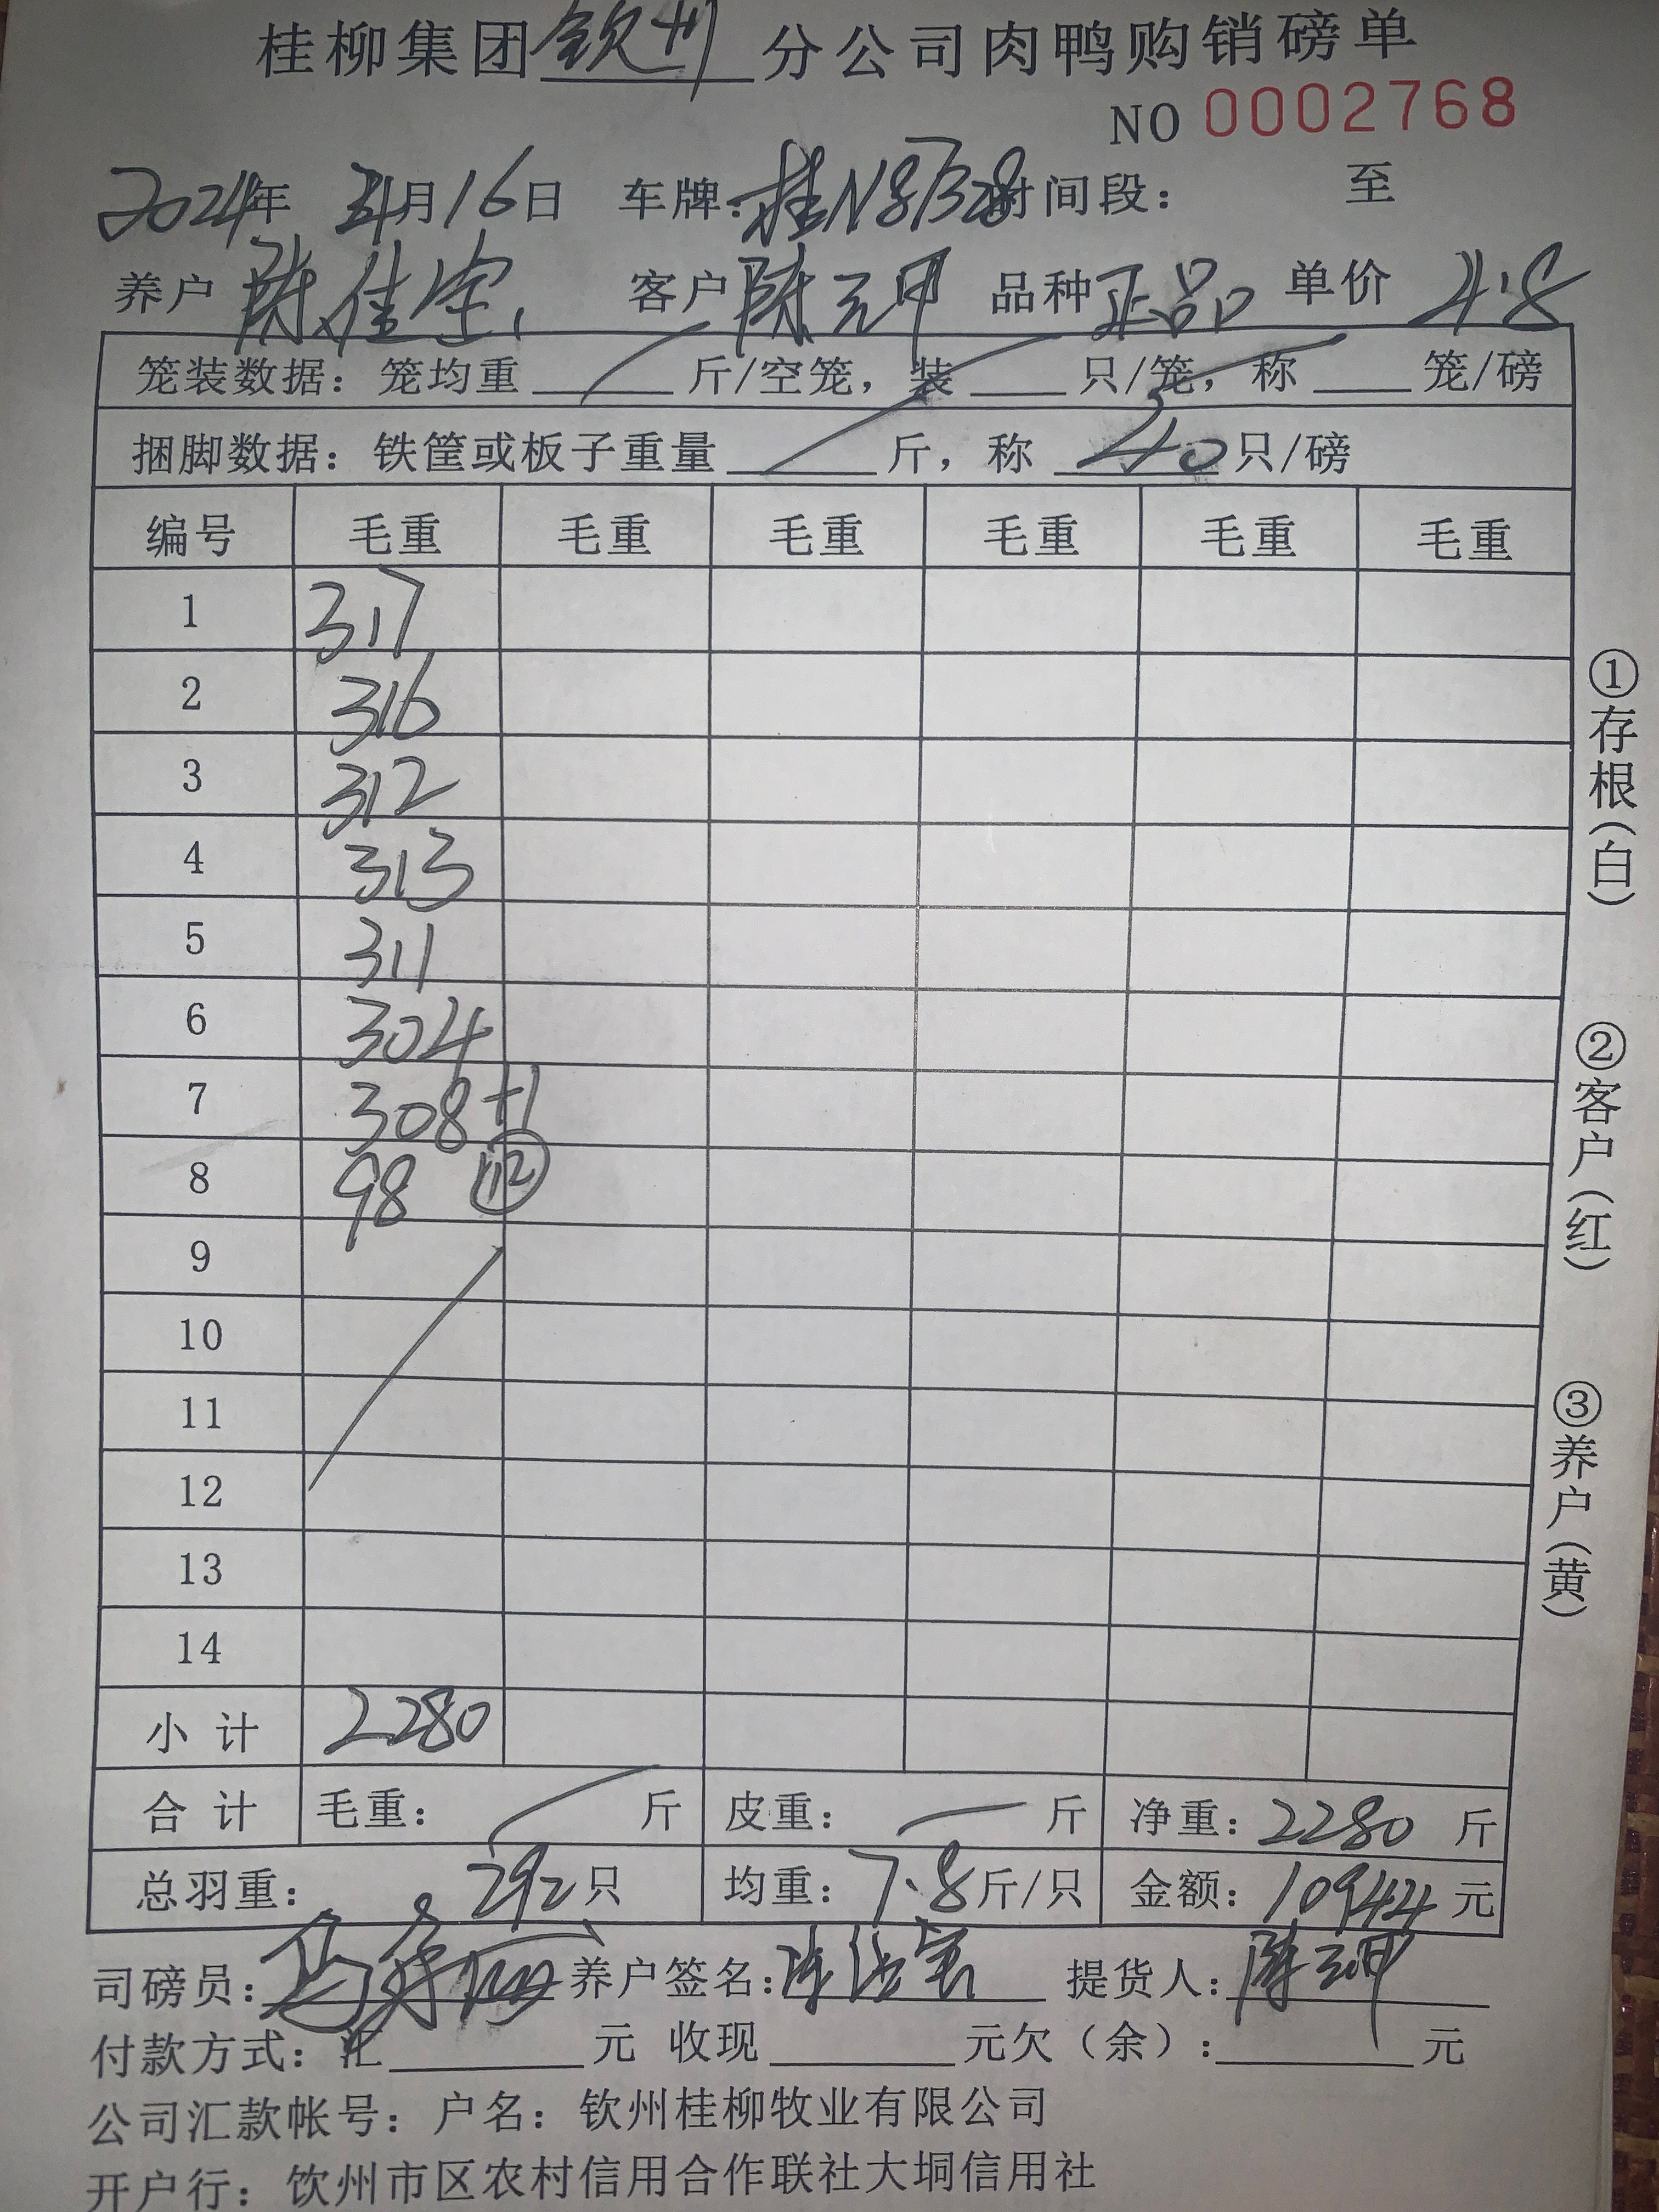 桂柳集团钦州分公司肉鸭购销磅单
NO 0002768
2024年 月16日 车牌：桂N87328 时间段： 至
养户 陈佳宝 客户 陈元甲 品种 正品 单价 4.8
笼装数据：笼均重 斤/空笼，装 只/笼，称 笼/磅
捆脚数据：铁筐或板子重量 斤，称 40只/磅
编号 毛重 毛重 毛重 毛重 毛重 毛重
1 317
2 316
3 312
4 313
5 311
6 304
7 308+1
8 98 ⑫
9
10
11
12
13
14
小计 2280
合计 毛重： 斤 皮重： 斤 净重：2280 斤
总羽重： 292只 均重：7.8斤/只 金额：10944元
司磅员： 养户签名： 提货人：陈元甲
付款方式：汇 元 收现 元欠（余）： 元
公司汇款帐号：户名：钦州桂柳牧业有限公司
开户行：钦州市区农村信用合作联社大垌信用社
①存根（白）
②客户（红）
③养户（黄）